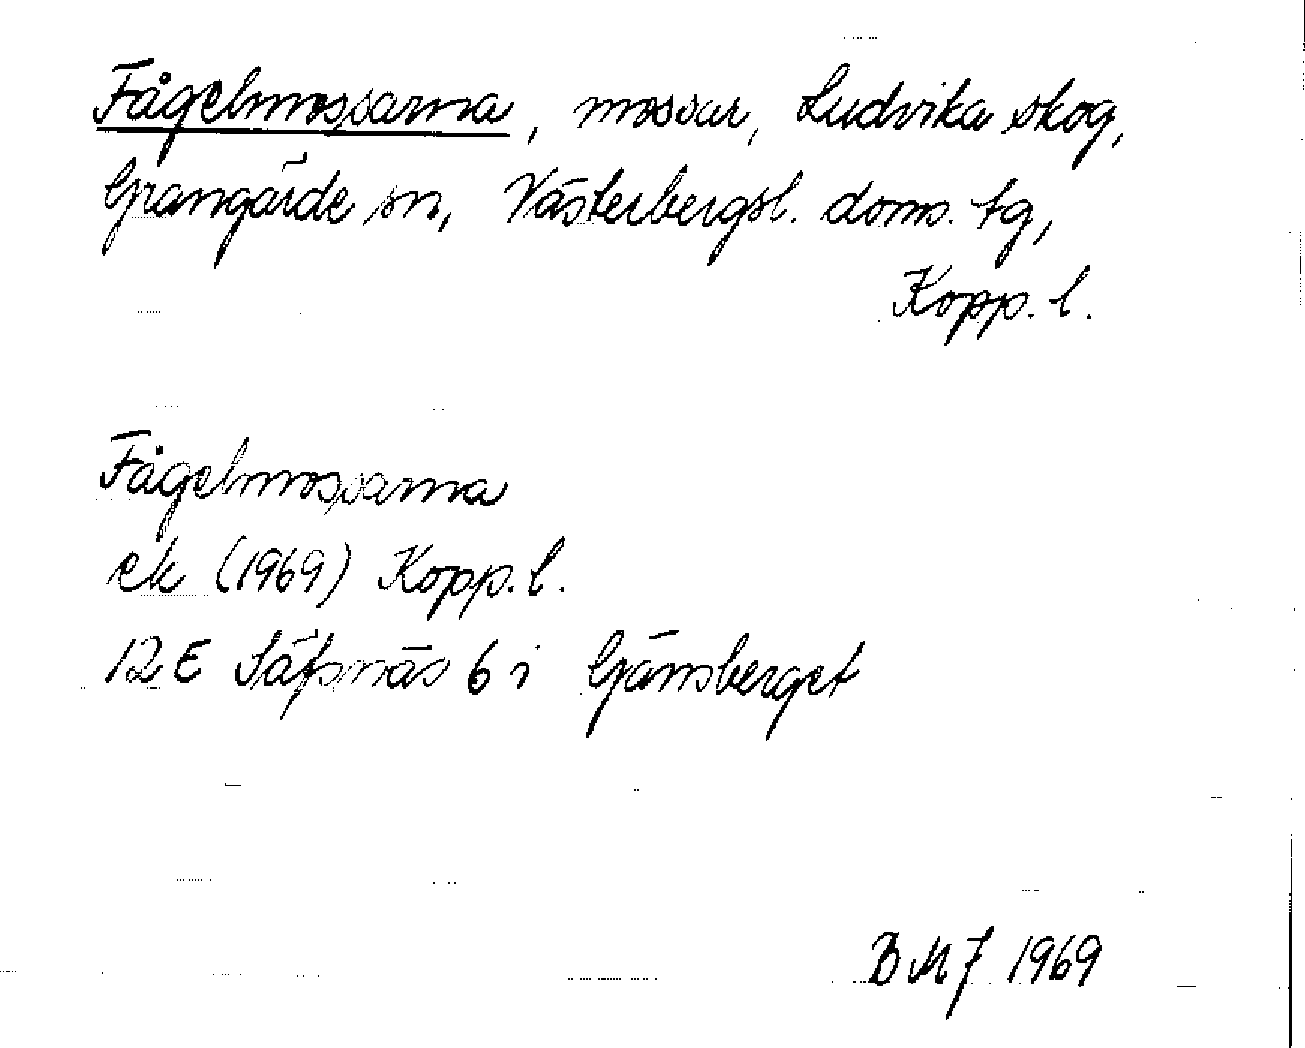 Fågelmossarna, mossar, Ludvika skog,
Grangärde sn, Västerbergsl. doms. tg,
Kopp. l.
Fågelmossarna
ek (1969) Kopp. l.
12 E Säfsnäs 6 i Gänsberget
BMJ 1969